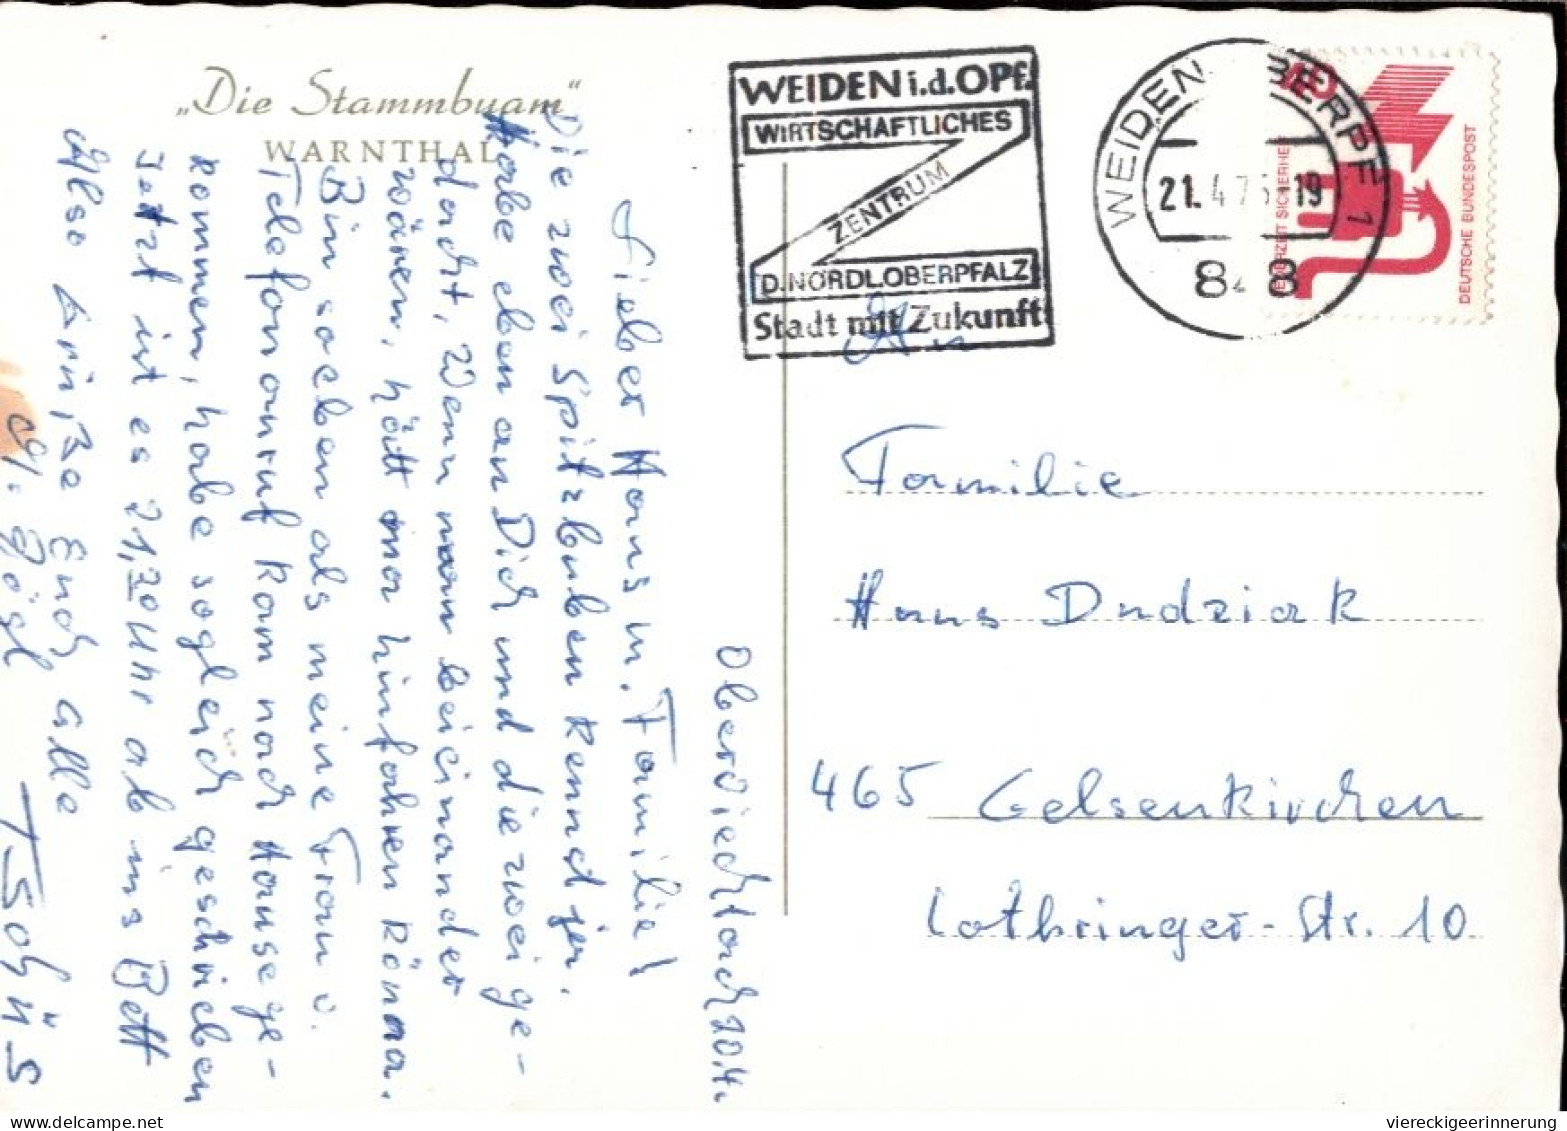 „Die Stammbuam"
WARNTHAL
Oberviechtach 20.4.
Lieber Hans u. Familie!
Die zwei Spitzbuben kennst jer.
Habe eben an Dich und die zwei ge-
dacht, Wenn man beieinander
wären, hätt ma hinfahren könna.
Bin soeben als meine Frau v.
Telefonanruf kam nach Hause ge-
kommen, habe sogleich geschrieben
Jetzt ist es 21,30 Uhr ab ins Bett
Also Grüße Euch alle
Tschüs
WEIDEN i.d.OPf.
WIRTSCHAFTLICHES
ZENTRUM
D.NÖRDL.OBERPFALZ
Stadt mit Zukunft
WEIDEN OBERPF 1
21.4.75-19
8 8
40
JEDERZEIT SICHERHEIT
DEUTSCHE BUNDESPOST
An
Familie
Hans Dudziak
465 Gelsenkirchen
Lothringer-Str. 10
viereckigeerinnerung